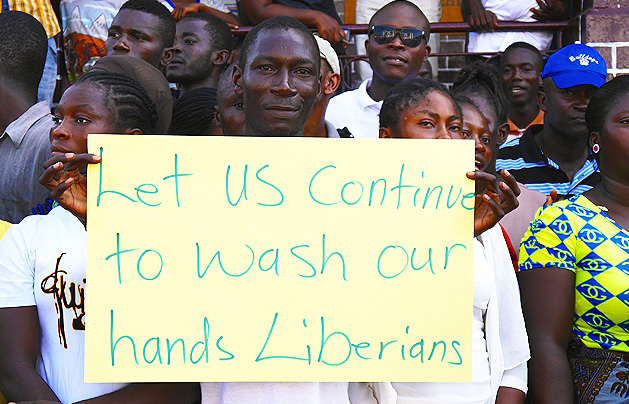 Let us Continue
to wash our
hands Liberians
Bulldogs